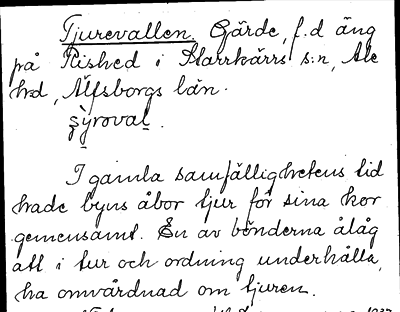 Tjurevallen. Gärde, f.d äng
på Rished i Starrkärrs s:n, Ale
hd, Älfsborgs län.
I gamla samfällighetens tid
hade byns åbor tjur för sina kor
gemensamt. En av bönderna ålåg
att i tur och ordning underhålla,
ha omvårdnad om tjuren.